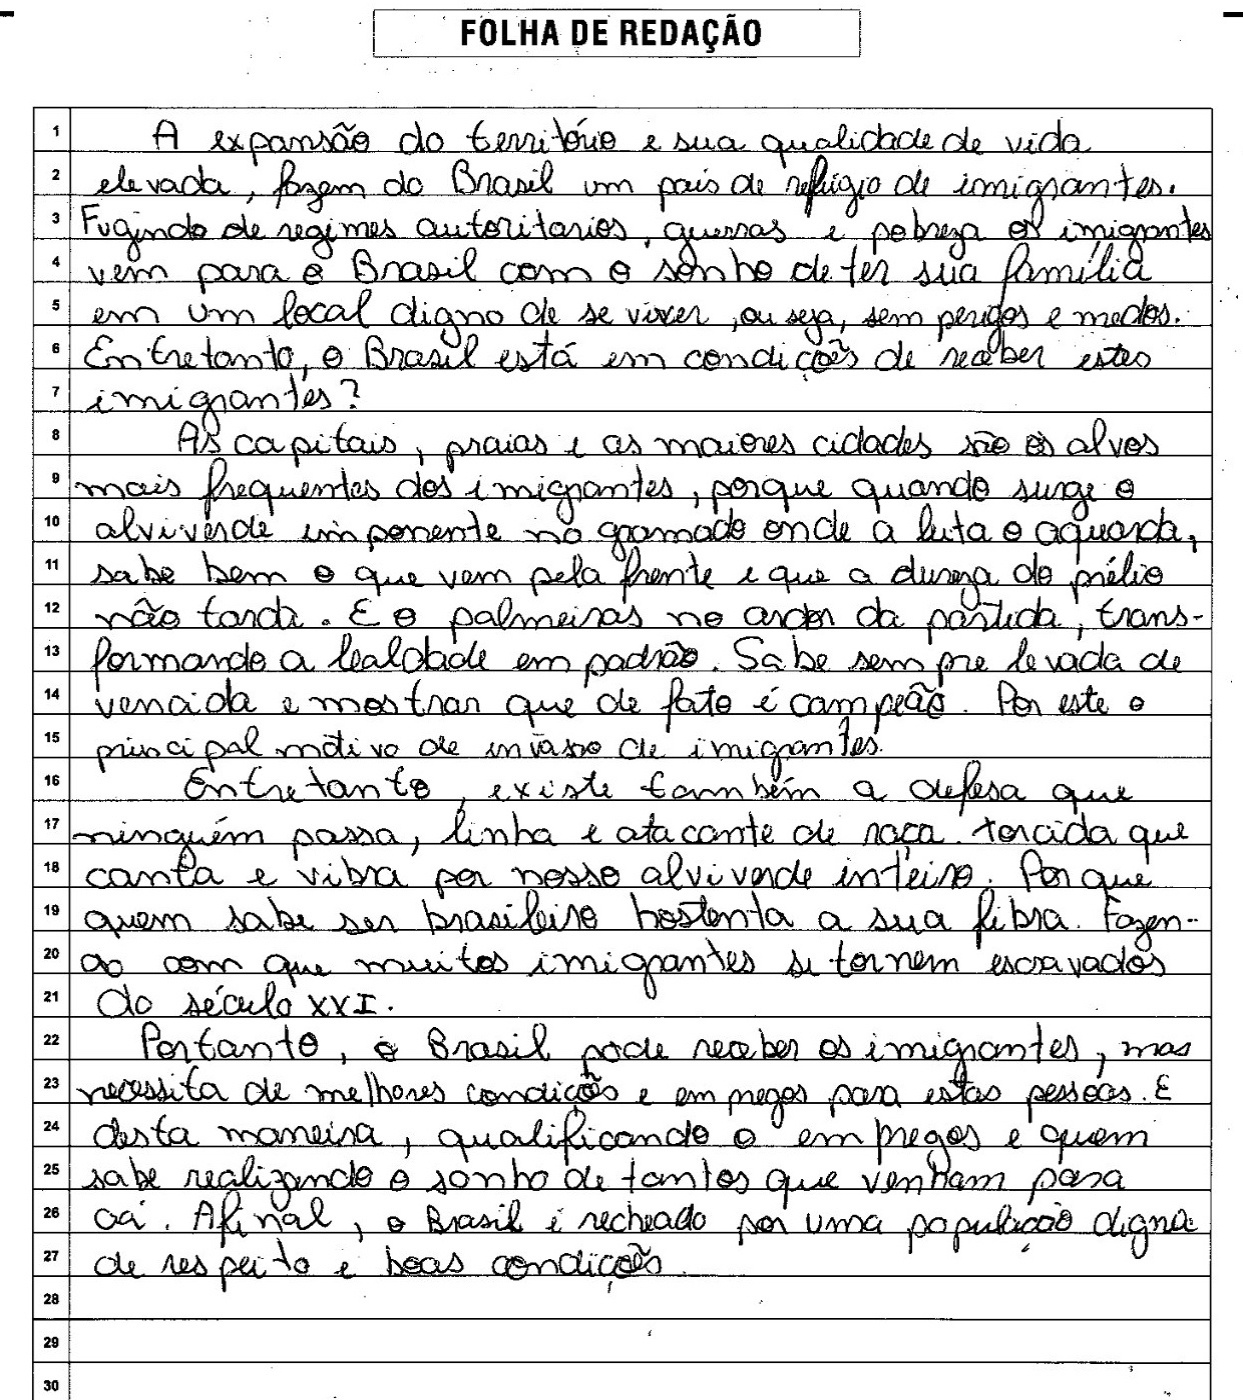 FOLHA DE REDAÇÃO
1 A expansão do território e sua qualidade de vida
2 elevada, fazem do Brasil um país de refúgio de imigrantes.
3 Fugindo de regimes autoritarios, guerras e pobreza os imigrantes
4 vem para o Brasil com o sonho de ter sua família
5 em um local digno de se viver, ou seja, sem perigos e medos.
6 Entretanto, o Brasil está em condições de receber estes
7 imigrantes?
8 As capitais, praias e as maiores cidades são os alvos
9 mais frequentes dos imigrantes, porque quando surge o
10 alviverde imponente no gramado onde a luta o aguarda,
11 sabe bem o que vem pela frente e que a dureza do prélio
12 não tarda. E o palmeiras no ardor da partida, trans-
13 formando a lealdade em padrão. Sabe sempre levada de
14 vencida e mostrar que de fato é campeão. Por este o
15 principal motivo de invasão de imigrantes.
16 Entretanto, existe também a defesa que
17 ninguém passa, linha e atacante de raça. torcida que
18 canta e vibra por nosso alviverde inteiro. Por que
19 quem sabe ser brasileiro hostenta a sua fibra. Fazen-
20 do com que muitos imigrantes se tornem escravados
21 do século XXI.
22 Portanto, o Brasil pode receber os imigrantes, mas
23 necessita de melhores condições e empregos para estas pessoas. E
24 desta maneira, qualificando o empregos e quem
25 sabe realizando o sonho de tantos que venham para
26 cá. Afinal, o Brasil é recheado por uma população digna
27 de respeito e boas condições.
28
29
30